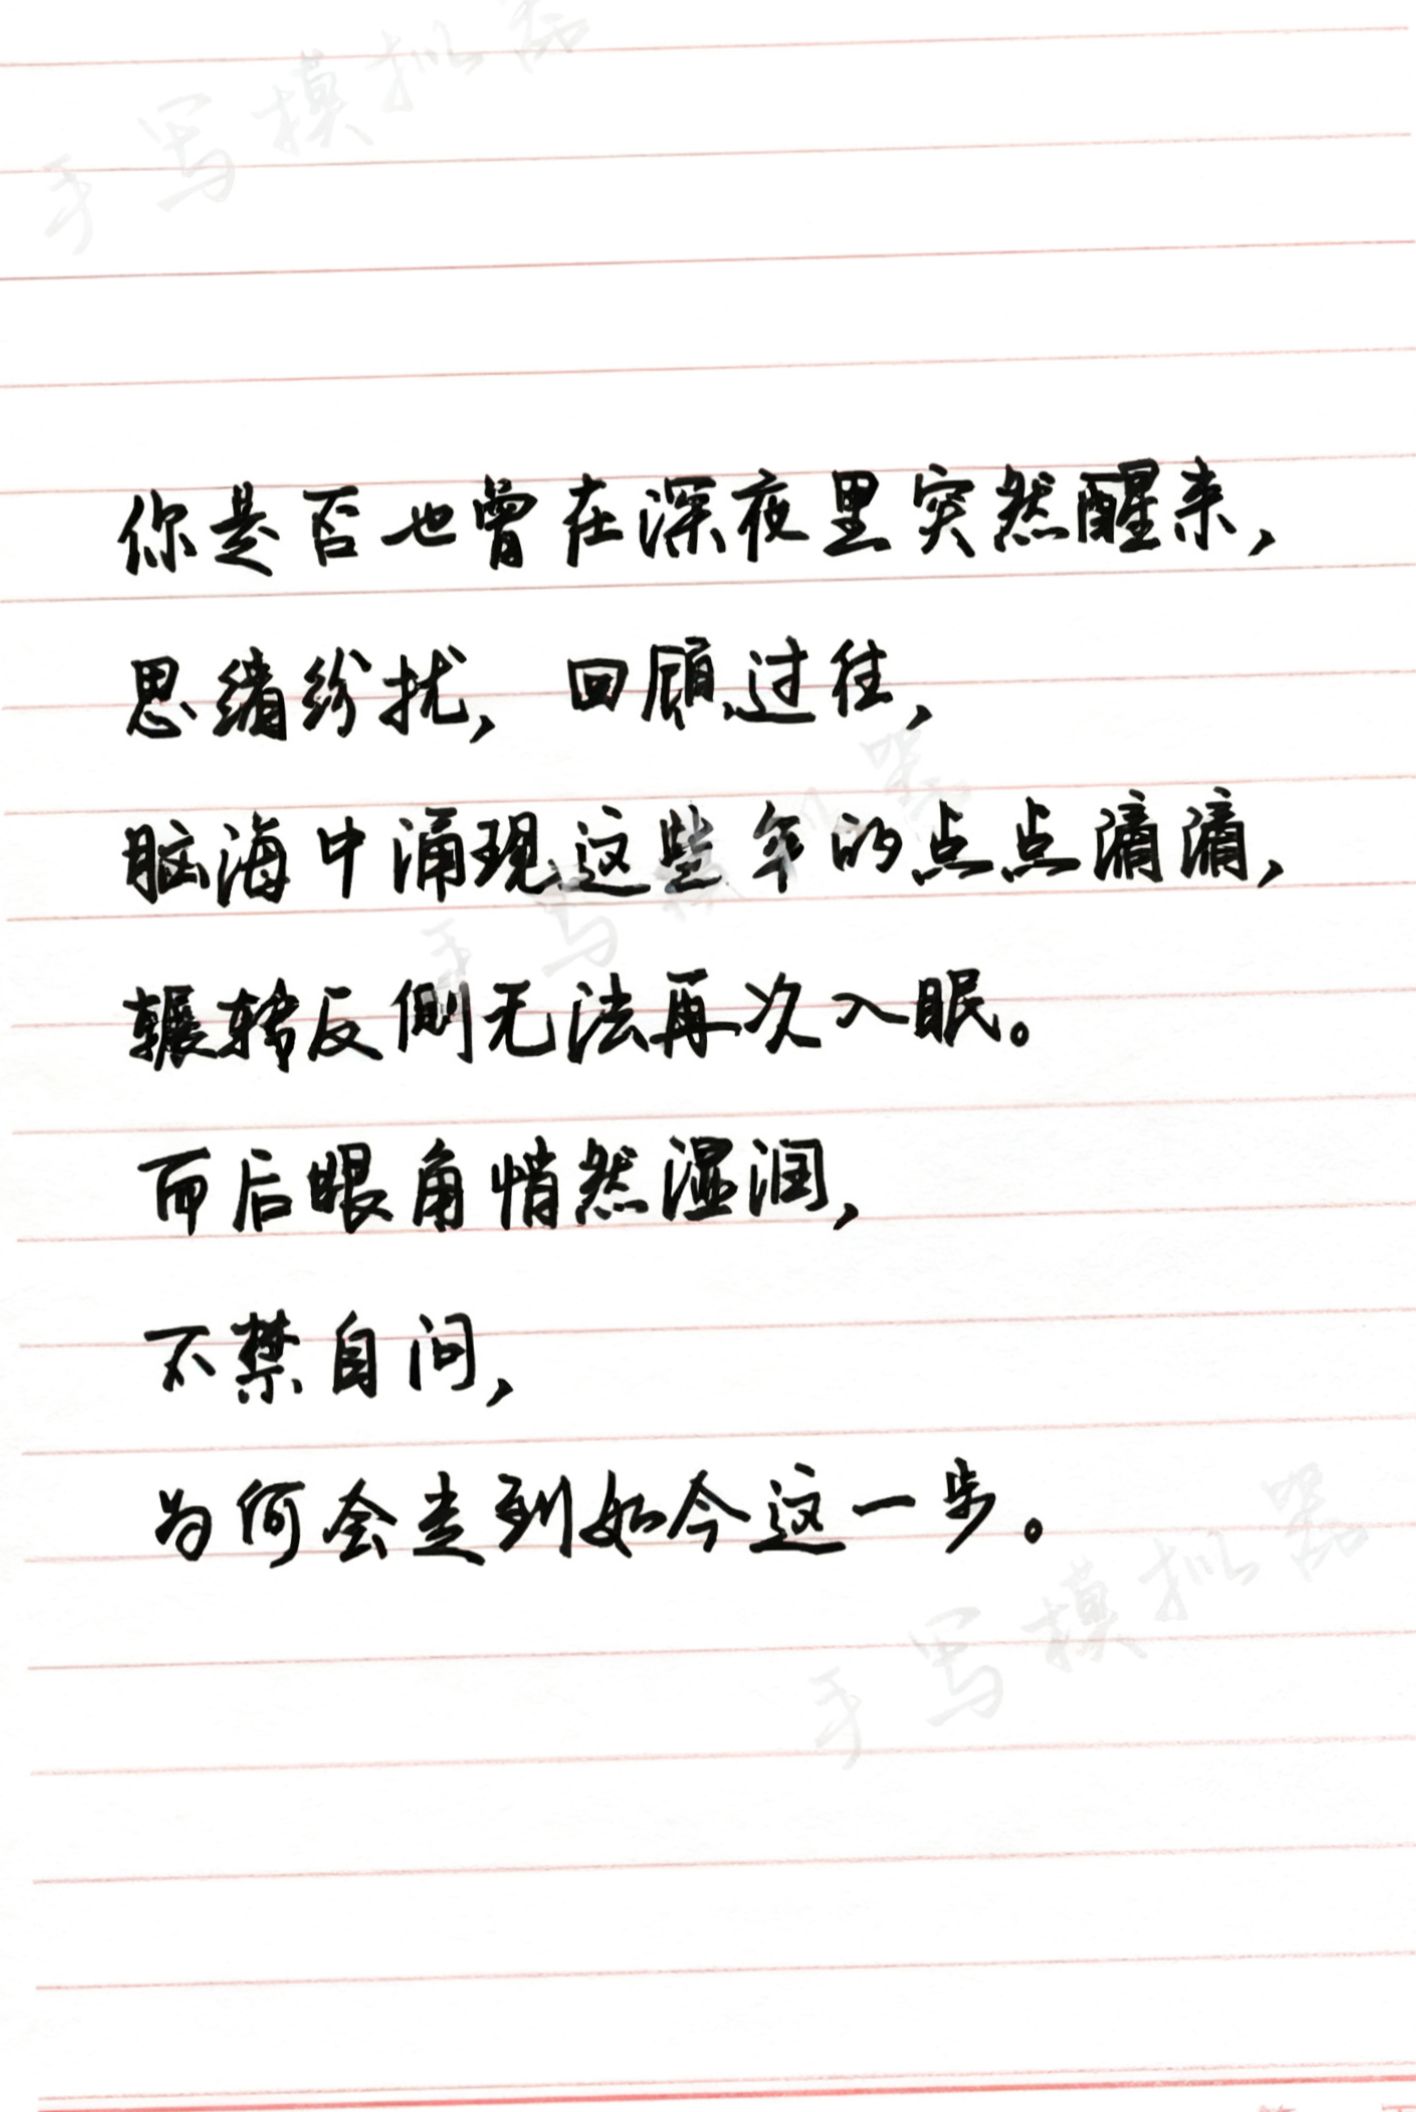 手写模拟器
你是否也曾在深夜里突然醒来,
思绪纷扰, 回顾过往,
脑海中涌现这些年的点点滴滴,
手写模拟器
辗转反侧无法再次入眠。
而后眼角悄然湿润,
不禁自问,
为何会走到如今这一步。
手写模拟器